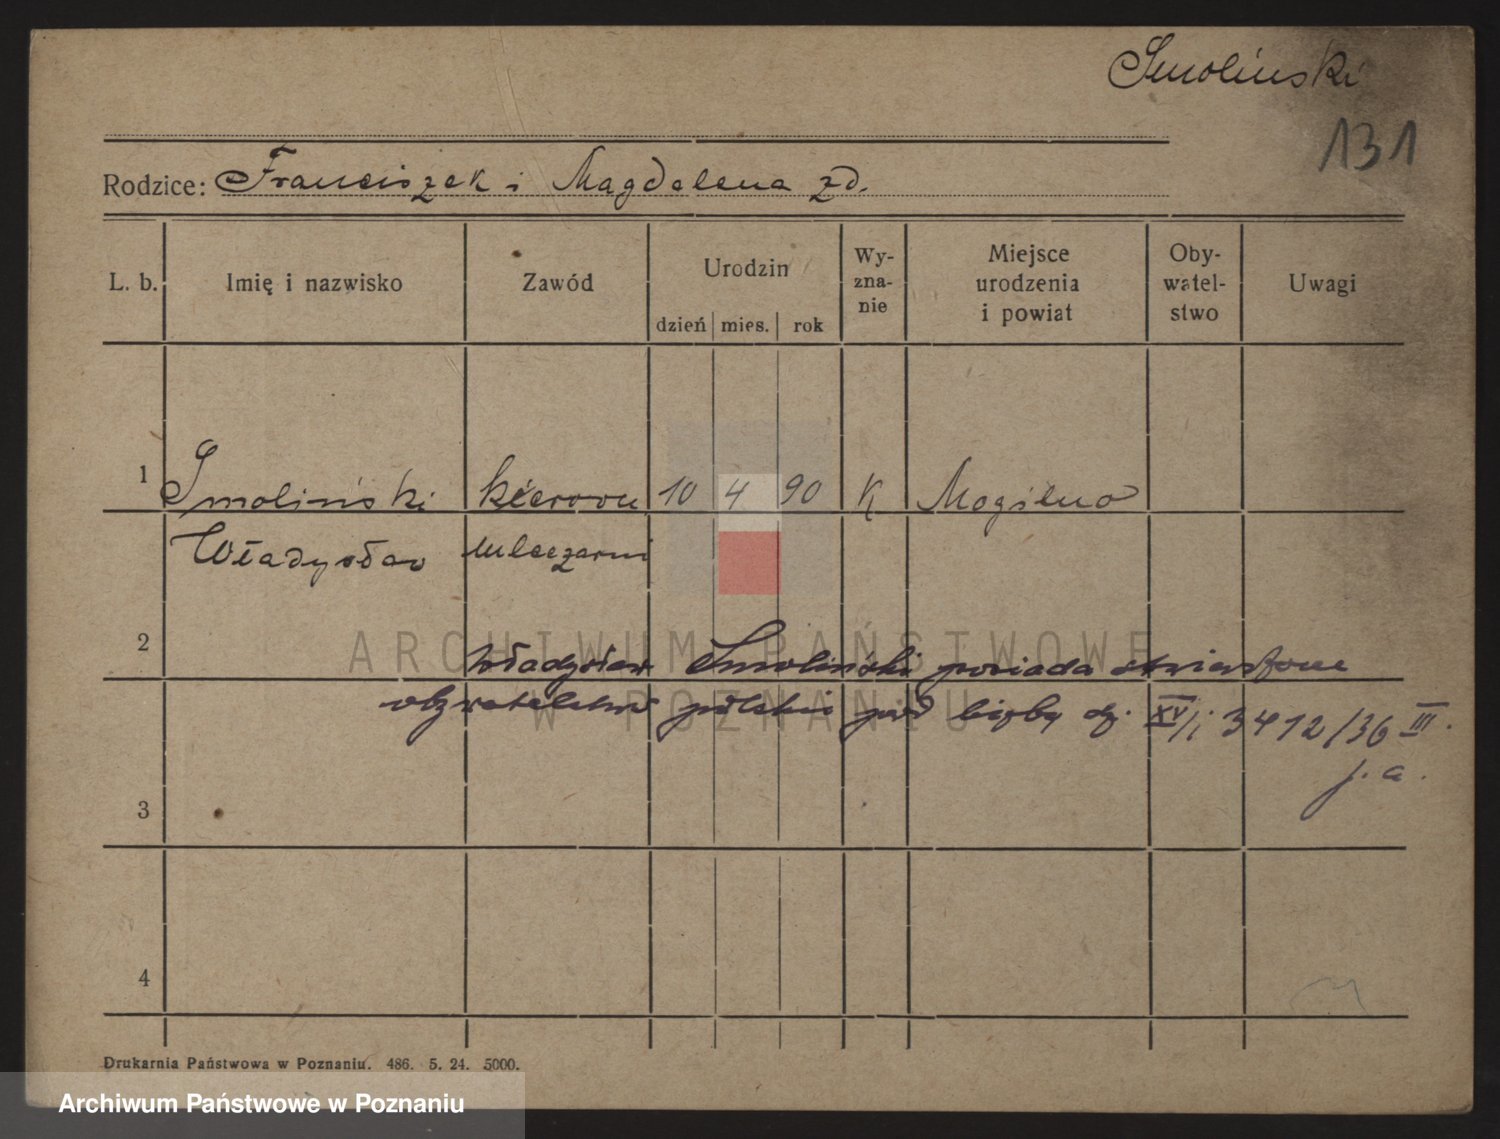 Smoliński
131
Rodzice: Franciszek i Magdalena zd.
L. b. Imię i nazwisko Zawód Urodzin dzień mies. rok Wy-zna-nie Miejsce urodzenia i powiat Oby-watel-stwo Uwagi
1 Smoliński kierown 10 4 90 K Mogilno
Władysław mleczarni
ARCHIWUM PAŃSTWOWE
2 Władysław Smoliński posiada stwierdzone
W POZNANIU
obywatelstwo polskie pod liczbą dz. XV/i 3412/36 III.
j. a.
3
4
Drukarnia Państwowa w Poznaniu. 486. 5. 24. 5000.
Archiwum Państwowe w Poznaniu